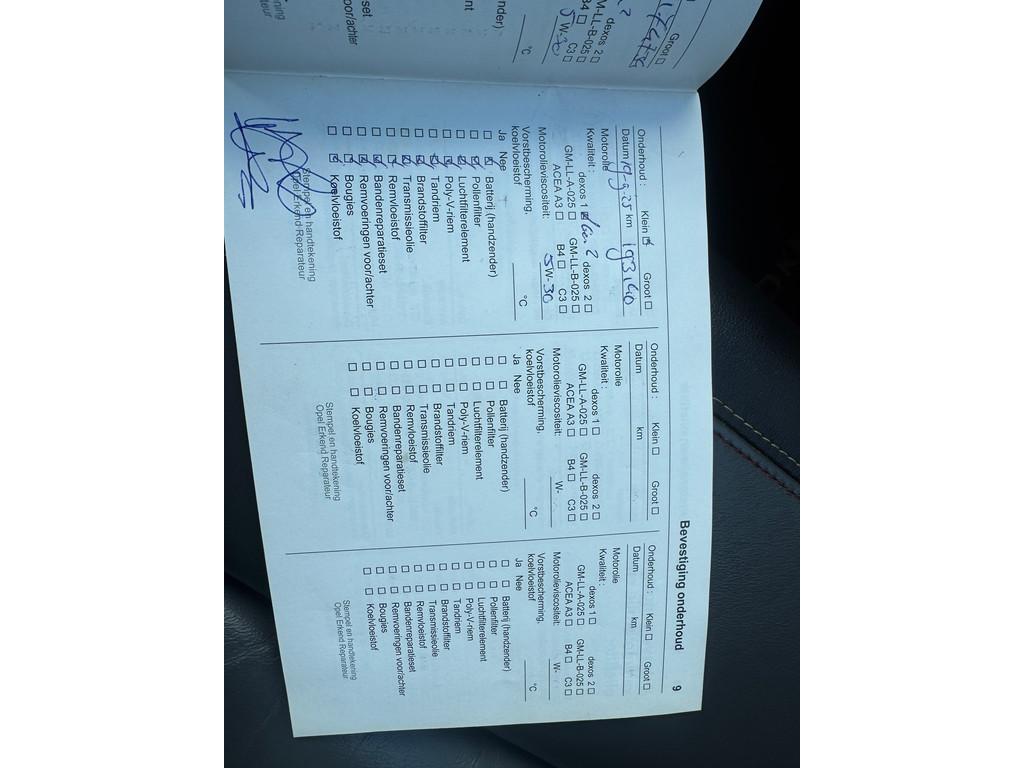 Groot ☐
dexos 2 ☐
GM-LL-B-025 ☐
B4 ☐ C3 ☐
5W-30
°C
nder)
ent
set
voor/achter
kening
Reparateur
Bevestiging onderhoud 9
Onderhoud : Klein ☑ Groot ☐
Datum 19-9-25 km 193140
Motorolie
Kwaliteit : dexos 1 ☑ dexos 2 ☐
GM-LL-A-025 ☐ GM-LL-B-025 ☐
ACEA A3 ☐ B4 ☐ C3 ☐
Motorolieviscositeit: 5W-30
Vorstbescherming,
koelvloeistof °C
Ja Nee
☐ ☑ Batterij (handzender)
☐ ☑ Pollenfilter
☐ ☑ Luchtfilterelement
☐ ☑ Poly-V-riem
☐ ☑ Tandriem
☐ ☑ Brandstoffilter
☐ ☑ Transmissieolie
☐ ☑ Remvloeistof
☐ ☑ Bandenreparatieset
☐ ☑ Remvoeringen voor/achter
☐ ☑ Bougies
☐ ☑ Koelvloeistof
Stempel en handtekening
Opel Erkend Reparateur
Onderhoud : Klein ☐ Groot ☐
Datum km
Motorolie
Kwaliteit :
dexos 1 ☐ dexos 2 ☐
GM-LL-A-025 ☐ GM-LL-B-025 ☐
ACEA A3 ☐ B4 ☐ C3 ☐
Motorolieviscositeit: W-
Vorstbescherming,
koelvloeistof °C
Ja Nee
☐ ☐ Batterij (handzender)
☐ ☐ Pollenfilter
☐ ☐ Luchtfilterelement
☐ ☐ Poly-V-riem
☐ ☐ Tandriem
☐ ☐ Brandstoffilter
☐ ☐ Transmissieolie
☐ ☐ Remvloeistof
☐ ☐ Bandenreparatieset
☐ ☐ Remvoeringen voor/achter
☐ ☐ Bougies
☐ ☐ Koelvloeistof
Stempel en handtekening
Opel Erkend Reparateur
Onderhoud : Klein ☐ Groot ☐
Datum km
Motorolie
Kwaliteit :
dexos 1 ☐ dexos 2 ☐
GM-LL-A-025 ☐ GM-LL-B-025 ☐
ACEA A3 ☐ B4 ☐ C3 ☐
Motorolieviscositeit: W-
Vorstbescherming,
koelvloeistof °C
Ja Nee
☐ ☐ Batterij (handzender)
☐ ☐ Pollenfilter
☐ ☐ Luchtfilterelement
☐ ☐ Poly-V-riem
☐ ☐ Tandriem
☐ ☐ Brandstoffilter
☐ ☐ Transmissieolie
☐ ☐ Remvloeistof
☐ ☐ Bandenreparatieset
☐ ☐ Remvoeringen voor/achter
☐ ☐ Bougies
☐ ☐ Koelvloeistof
Stempel en handtekening
Opel Erkend Reparateur